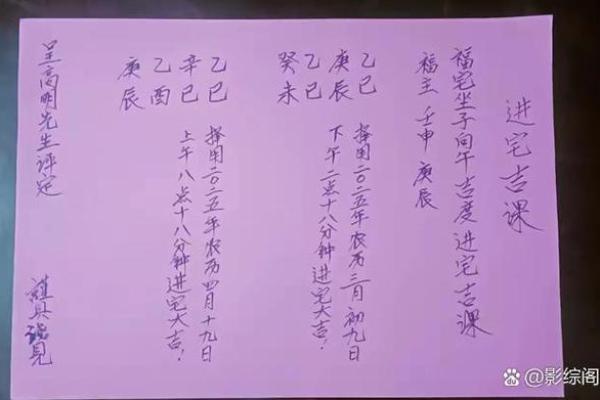 进宅吉课
福宅坐子向午吉度进宅吉课
福主 壬申 庚辰
乙巳
庚辰
乙巳
癸未
择用二〇二五年农历三月初九日
下午二点十八分钟进宅大吉!
乙巳
辛巳
乙酉
庚辰
择用二〇二五年农历四月十九日
上午八点十八分钟进宅大吉!
呈高明先生评定
見
@影综阁